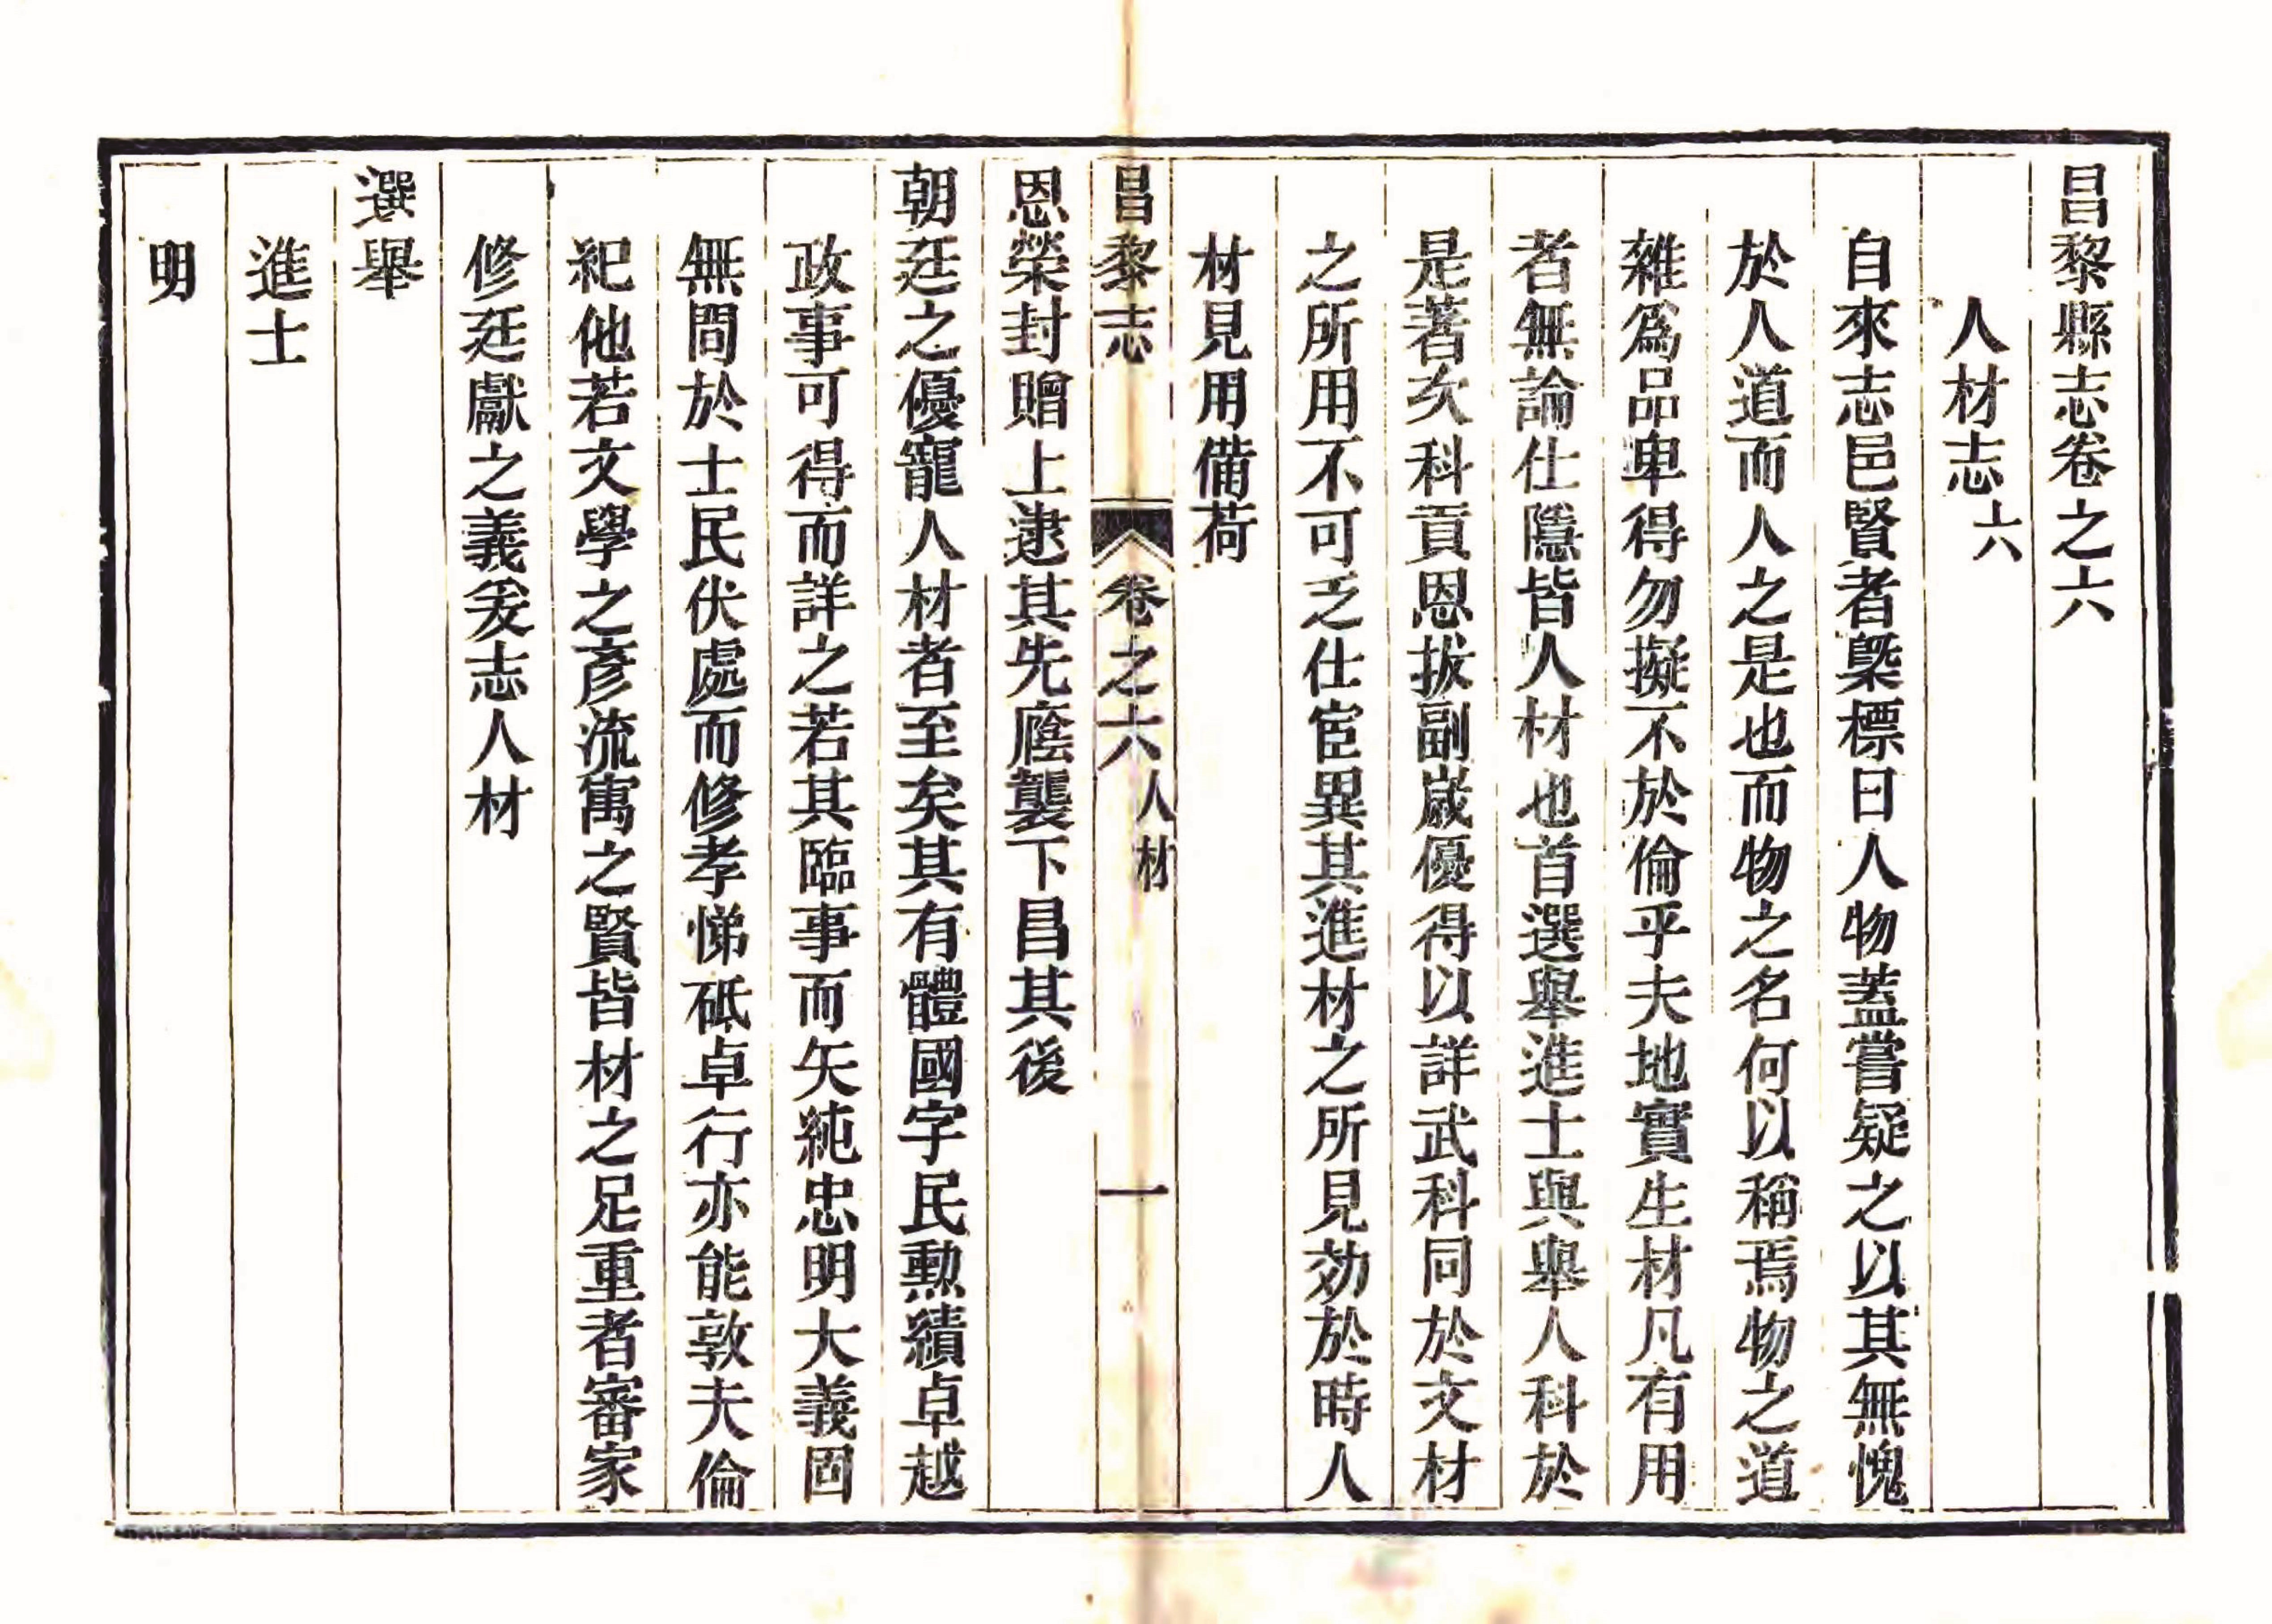 昌黎縣志卷之六
人材志六
自來志邑賢者槩標曰人物蓋嘗疑之以其無愧
於人道而人之是也而物之名何以稱焉物之道
雜爲品卑得勿擬不於倫乎夫地實生材凡有用
者無論仕隱皆人材也首選舉進士與舉人科於
是著矣科貢恩拔副嵗優得以詳武科同於文材
之所用不可乏仕宦異其進材之所見効於時人
材見用備荷
昌黎志 卷之六 人材 一
恩榮封贈上逮其先廕襲下昌其後
朝廷之優寵人材者至矣其有體國字民勲績卓越
政事可得而詳之若其臨事而矢純忠明大義固
無間於士民伏處而修孝悌砥卓行亦能敦夫倫
紀他若文學之彥流寓之賢皆材之足重者審家
修廷獻之義爰志人材
選舉
進士
明